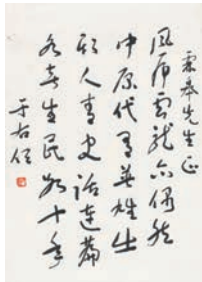 霖先生正
風虎雲龍亦偶然
中原代有英雄出
欺人青史話連篇
各苦生民數十年
于右任